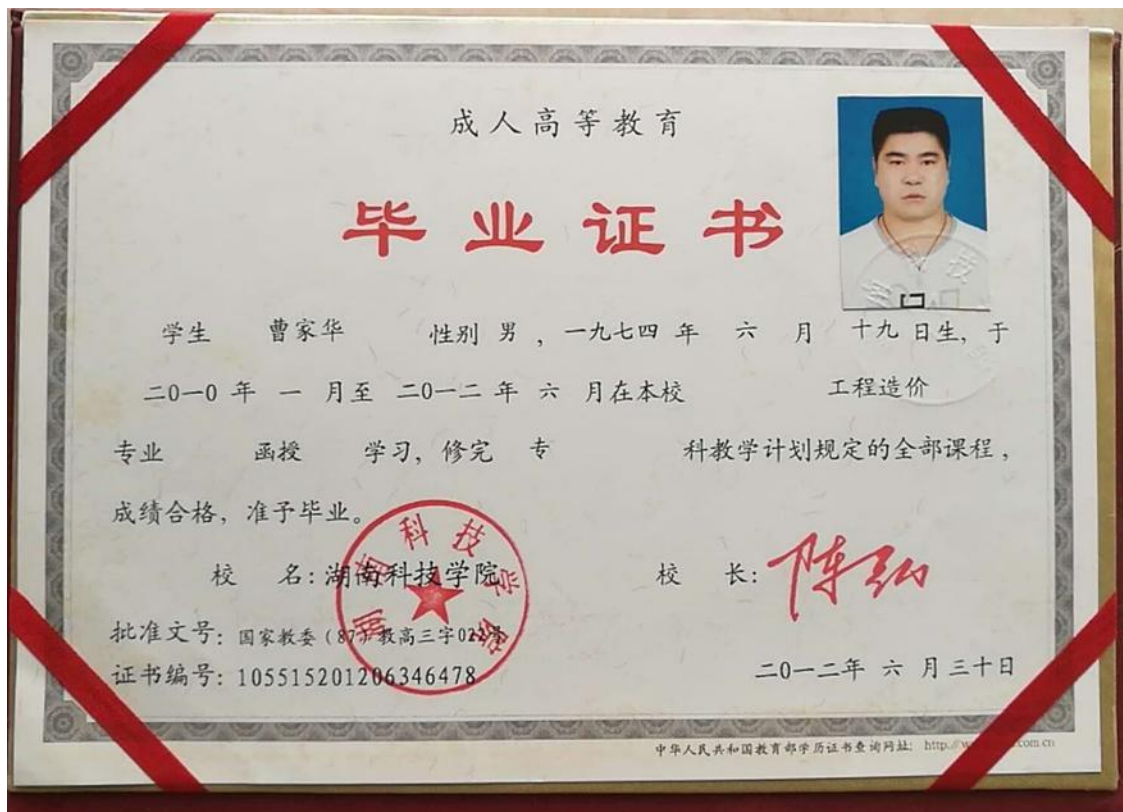 成人高等教育
毕业证书
学生 曹家华 性别 男 ，一九七四 年 六 月 十九 日生，于
二0一0 年 一 月至 二0一二 年 六 月在本校 工程造价
专业 函授 学习，修完 专 科教学计划规定的全部课程，
成绩合格，准予毕业。
校 名：湖南科技学院
湖南科技学院
校 长：陈弘
批准文号：国家教委（87）教高三字022号
证书编号：105515201206346478
二0一二年 六 月三十日
中华人民共和国教育部学历证书查询网址：http://w
com.cn